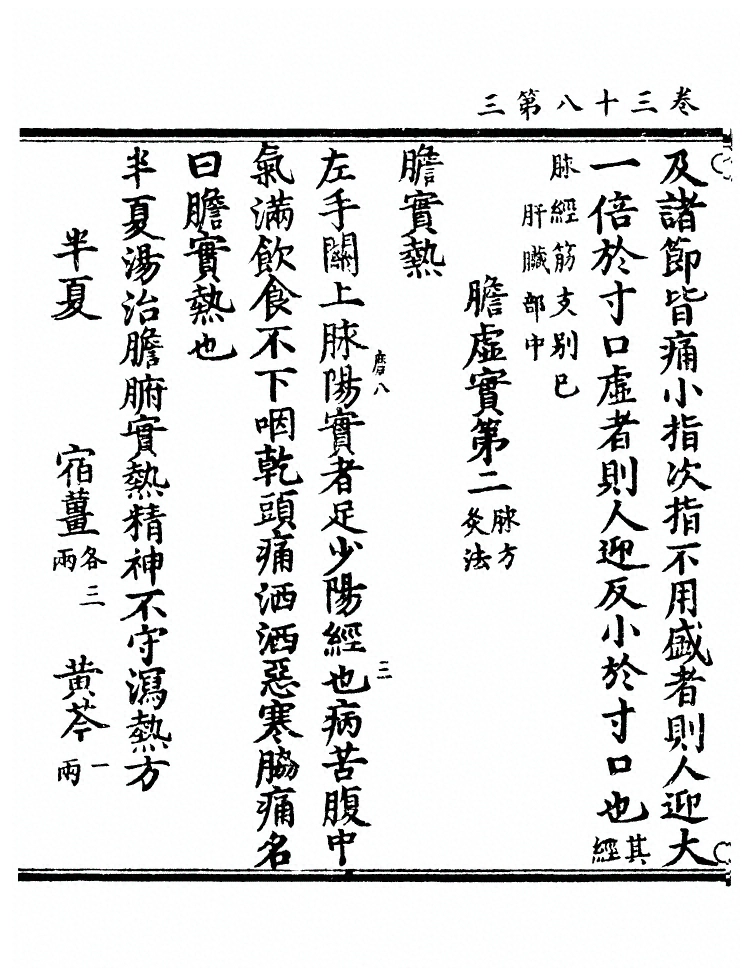 卷三十八第三
及諸節皆痛小指次指不用盛者則人迎大
一倍於寸口虛者則人迎反小於寸口也其經
脉經筋支別已
肝臟部中
膽虛實第二 脉方灸法
膽實熱
左手關上脉陽實者足少陽經也病苦腹中
三
氣滿飲食不下咽乾頭痛洒洒惡寒脇痛名
曰膽實熱也
半夏湯治膽腑實熱精神不守瀉熱方
半夏 宿薑各三兩 黃芩一兩